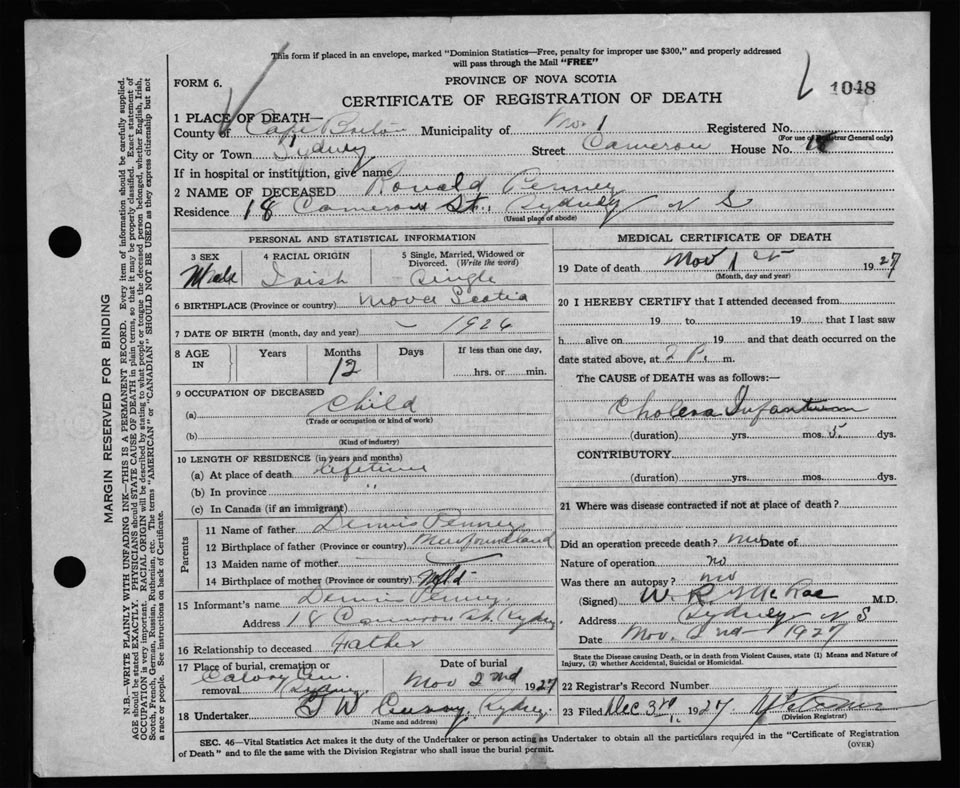 This form if placed in an envelope, marked "Dominion Statistics—Free, penalty for improper use $300," and properly addressed
will pass through the Mail "FREE"
FORM 6.
PROVINCE OF NOVA SCOTIA
1048
CERTIFICATE OF REGISTRATION OF DEATH
1 PLACE OF DEATH—
County of Cape Breton Municipality of No. 1 Registered No.
(For use of Registrar General only)
City or Town Sydney Street Cameron House No. 18
If in hospital or institution, give name
2 NAME OF DECEASED Ronald Penney
Residence 18 Cameron St., Sydney N S
(Usual place of abode)
PERSONAL AND STATISTICAL INFORMATION
3 SEX 4 RACIAL ORIGIN 5 Single, Married, Widowed or Divorced. (Write the word)
Male Irish Single
6 BIRTHPLACE (Province or country) Nova Scotia
7 DATE OF BIRTH (month, day and year) — 1926
8 AGE IN Years Months Days If less than one day,
12 hrs. or min.
9 OCCUPATION OF DECEASED
(a) Child
(Trade or occupation or kind of work)
(b)
(Kind of industry)
10 LENGTH OF RESIDENCE (in years and months)
(a) At place of death lifetime
(b) In province "
(c) In Canada (if an immigrant)
Parents
11 Name of father Dennis Penney
12 Birthplace of father (Province or country) Newfoundland
13 Maiden name of mother
14 Birthplace of mother (Province or country) Nfl'd
15 Informant's name Dennis Penney
Address 18 Cameron St. Sydney
16 Relationship to deceased Father
17 Place of burial, cremation or removal Calvary Cem. Sydney
Date of burial
Nov 2nd 1927
18 Undertaker Sydney
(Name and address)
MEDICAL CERTIFICATE OF DEATH
19 Date of death Nov 1st 1927
(Month, day and year)
20 I HEREBY CERTIFY that I attended deceased from
19 to 19 that I last saw
h alive on 19 and that death occurred on the
date stated above, at 2 P. m.
The CAUSE of DEATH was as follows:—
Cholera Infantum
(duration) yrs. mos. 5 dys.
CONTRIBUTORY
(duration) yrs. mos. dys.
21 Where was disease contracted if not at place of death?
Did an operation precede death? no Date of
Nature of operation no
Was there an autopsy? no
(Signed) W. R. McRae M.D.
Address Sydney N S
Date Nov. 2nd 1927
State the Disease causing Death, or in death from Violent Causes, state (1) Means and Nature of
Injury, (2) whether Accidental, Suicidal or Homicidal.
22 Registrar's Record Number
23 Filed Dec 3rd 1927
(Division Registrar)
SEC. 46—Vital Statistics Act makes it the duty of the Undertaker or person acting as Undertaker to obtain all the particulars required in the "Certificate of Registration
of Death" and to file the same with the Division Registrar who shall issue the burial permit.
(OVER)
MARGIN RESERVED FOR BINDING
N.B.—WRITE PLAINLY WITH UNFADING INK—THIS IS A PERMANENT RECORD. Every item of information should be carefully supplied.
AGE should be stated EXACTLY. PHYSICIANS should STATE CAUSE OF DEATH in plain terms, so that it may be properly classified. Exact statement of
OCCUPATION is very important. RACIAL ORIGIN will be described by stating to what people or tongue the deceased person belonged, whether English, Irish,
Scotch, French, German, Russian, Ruthenian, etc. The terms "AMERICAN" or "CANADIAN" SHOULD NOT BE USED as they express citizenship but not
a race or people. See instructions on back of Certificate.